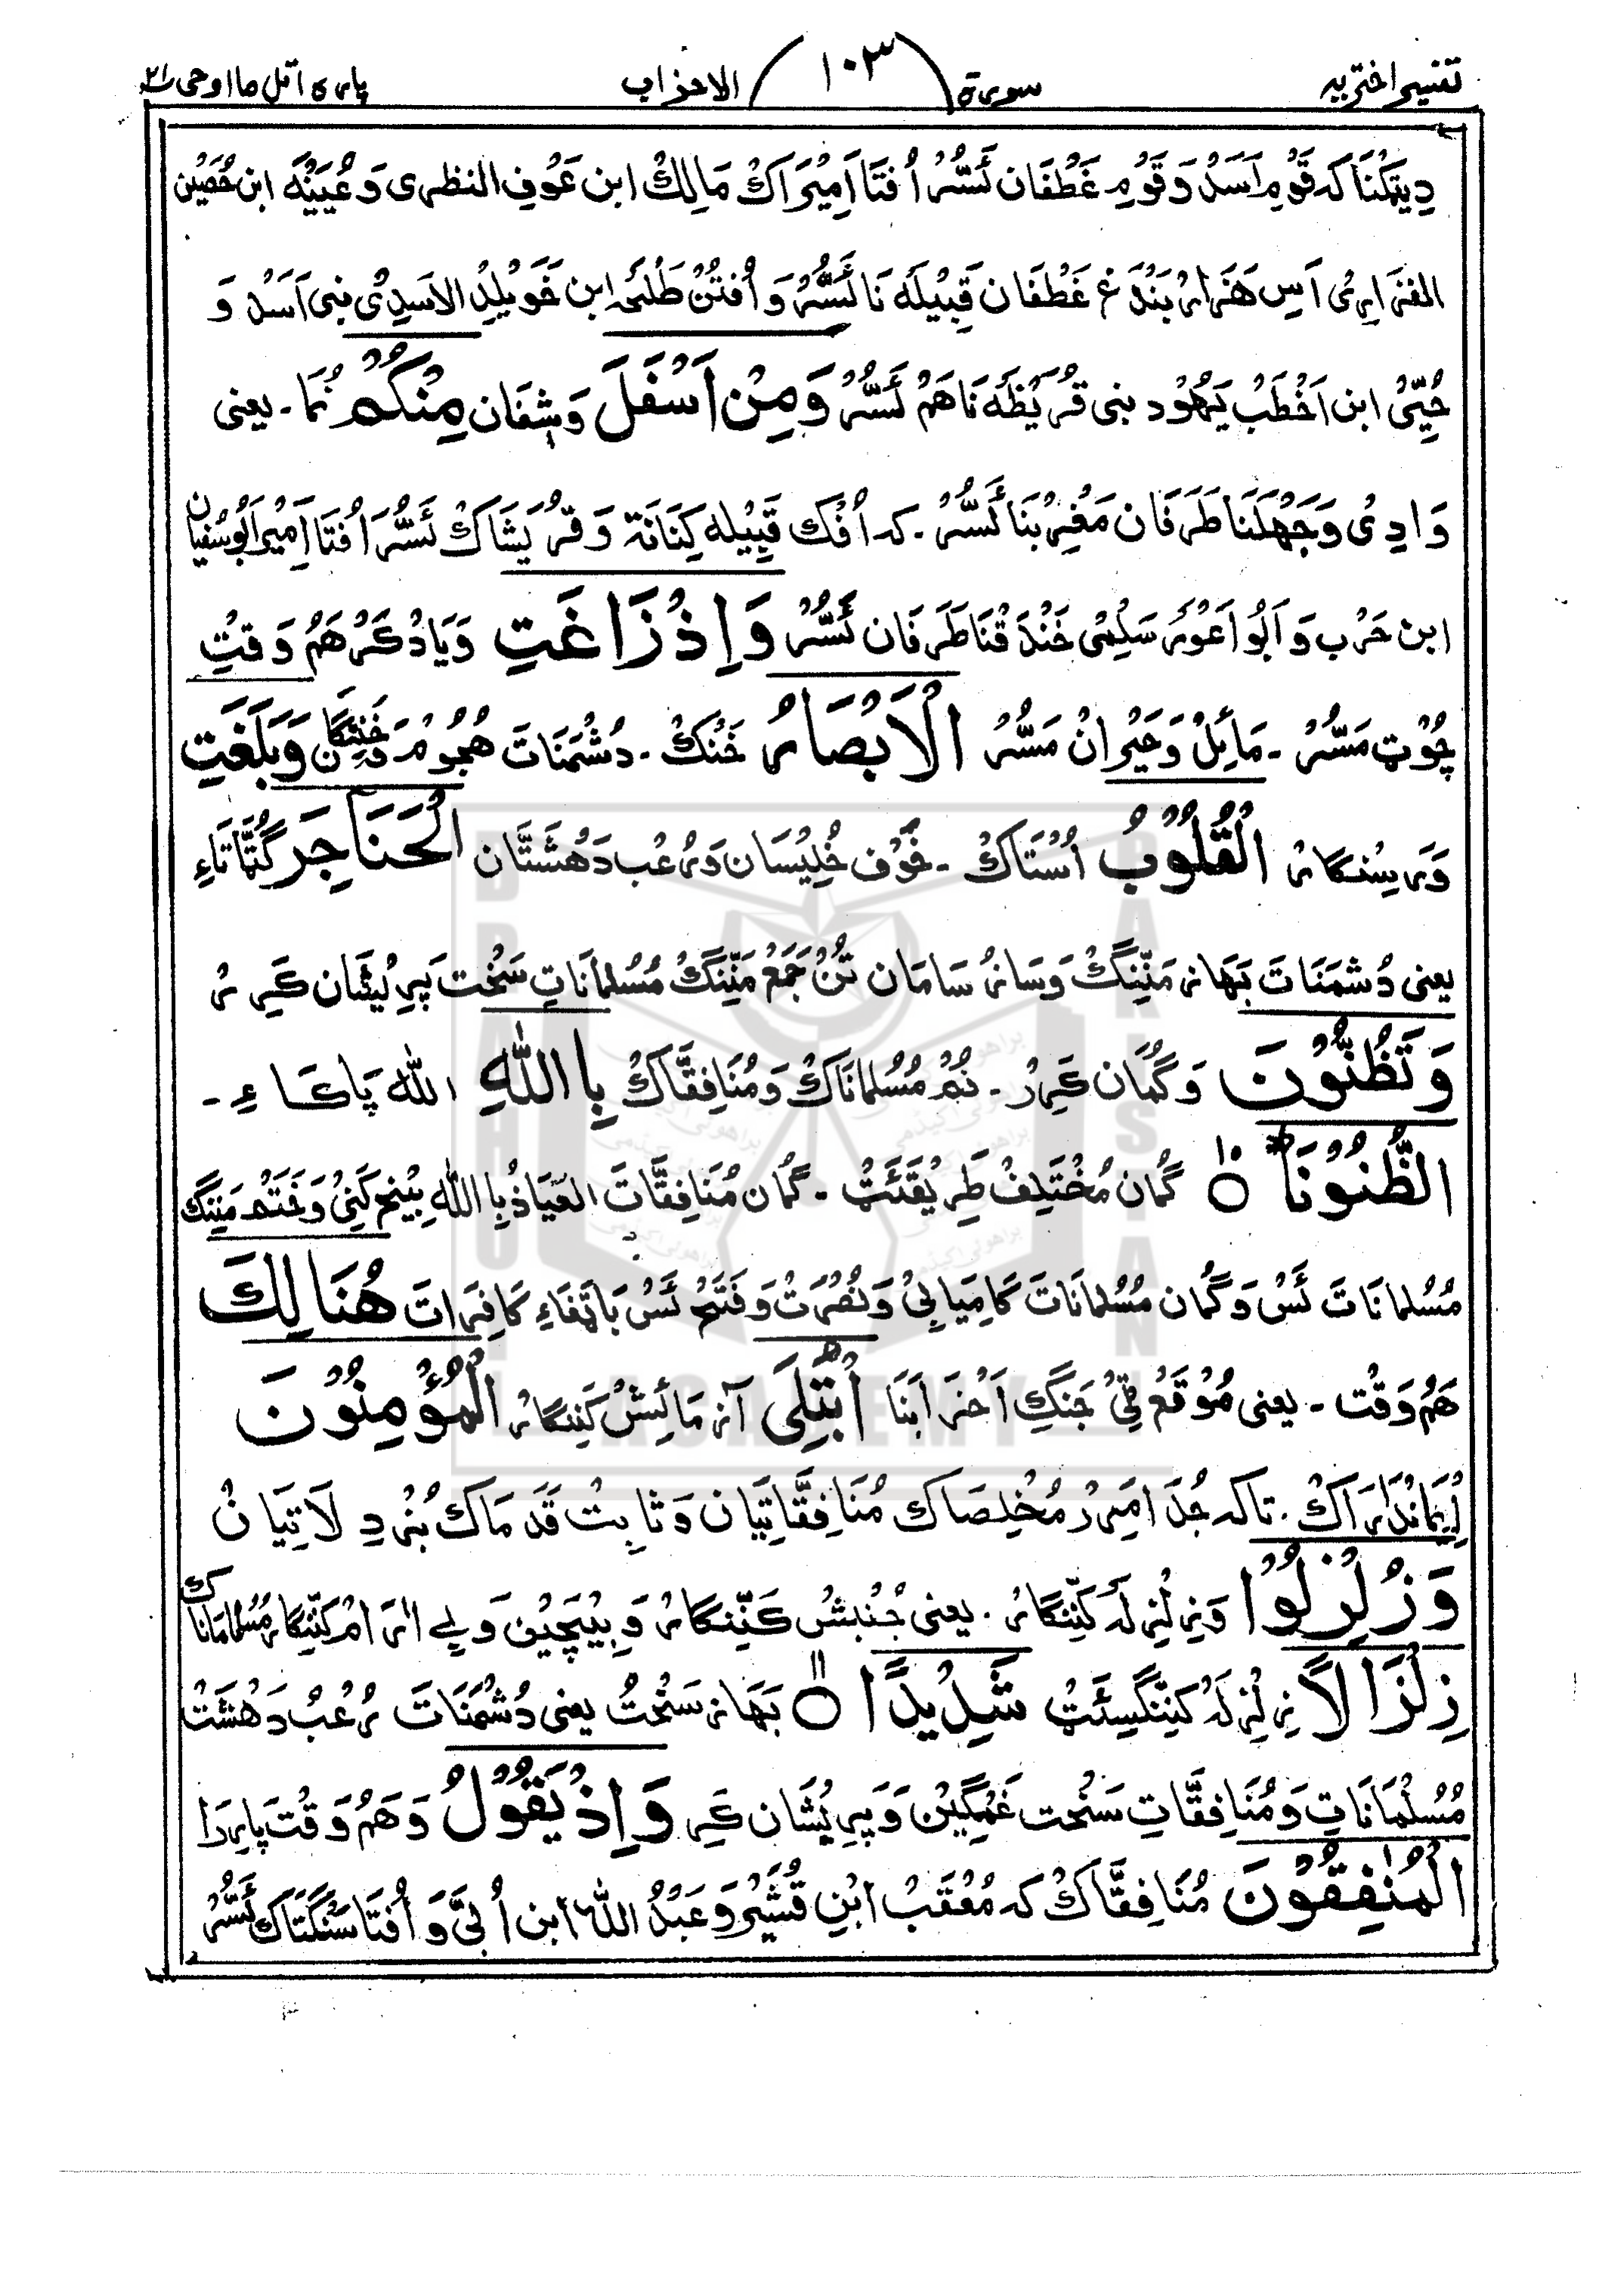 تفسیر اختریہ سورۃ ۱۰۳ الاحزاب پارہ اتل ما اوحی ۲۱
دِیتِکُنَا کہ قَومِ اَسَدْ وَ قَومِ غَطْفَان ئَسُّر اُفتَا اَمِیْرَاکْ مَالِکْ ابن عَوْفِ النظری وَ عُیَیْنَہ ابن حُصَیْن
الفَزَارِیْ اَسِ ھَزَار بَنْدَغ غَطْفَان قَبِیْلَہ نَا ئَسُّر وَ اُفتُنْ طَلْحَہ ابن خَوِیْلِدِ الاَسِدِیْ بنی اَسَدْ وَ
حُیِّیْ ابن اَخْطَبْ یَہُوْد بنی قُرَیْظَہ نَا ھَمْ ئَسُّر وَمِنْ اَسْفَلَ وَ شِفَان مِنْکُمْ نُمَا۔ یعنی
وَادِیْ وَجَہْلَنَا طَرَفَان مَغْرِبْنَا ئَسُّر۔ کہ اُفْک قَبِیْلہ کِنَانَۃ وَ قُرَیْشَاکْ ئَسُّر اُفتَا اَمِیْر اَبُو سُفْیَان
ابن حَرْب وَ اَبُو اَعْوَر سَلِمْی خَنْدَقْنَا طَرَفَان ئَسُّر وَاِذْ زَاغَتِ وَ یَادْ کَرْ ھَمْ وَقتِ
چُوْٹ مَسُّر۔ مَائِلْ وَ حَیْرَانْ مَسُّر الْاَبْصَارُ خَنْکْ۔ دُشْمَنَاتَ ھُجُوْمَ خَنِنگا وَبَلَغَتِ
وَ رَسِنْگار الْقُلُوْبُ اُسْتَاکْ۔ خَوْف خُلِیْسَان وَ رُعْب دَھْشَتَان الْحَنَاجِرَ گُٹَّاتَاءِ
یعنی دُشْمَنَاتَ بَھَاز مَنِّنگْ وَ سَازْ سَامَان تُنْ جَمَعْ مَنِّنگْ مُسُلمانَاتِ سَخْت پَرِیْشَان کَرِر
وَتَظُنُّوْنَ وَ گُمَان کَرِر۔ نُمْ مُسُلمانَاکْ وَ مُنَافِقَّاکْ بِاللّٰهِ اللّٰہ پَاکَاءِ۔
الظُّنُوْنَا ۱۰ گُمَان مُخْتَلِفْ طَرِیْقَئَٹ۔ گُمَان مُنَافِقَّاتَ العَیَاذُ بِاللّٰہِ بِیْخ کَنِیْ وَ خَتَمْ مَنِنگ
مُسُلمانَاتَ ئَسْ وَ گُمَان مُسُلمانَاتَ کَامِیَابِیْ وَ نُصْرَتْ وَ فَتَحْ ئَسْ بَاتِھَاءِ کَافِرَاتَ ھُنَالِكَ
ھَمُ وَقْت۔ یعنی مَوْقَعْ ٹِیْ جَنگِ اَحْزَابَنَا ابْتُلِیَ آزمَائِشْ کَنِنگار الْمُؤْمِنُوْنَ
اِیْمَانْدَارَاکْ۔ تاکہ جُدَا مَرِر مُخْلِصَاک مُنَافِقَّاتِیَان وَ ثَابِتْ قَدَمَاک بُزدِلَاتِیَانْ
وَزُلْزِلُوْا وَ زِلْزِلَہ کَنِّنگار۔ یعنی جُنْبِشْ کَنِّنگار وَ بِیْچَیْن وَ بے اٰرَامْ کَنِّنگار مُسُلمانَاک
زِلْزَالًا زِلْزِلَہ کَنِنگسِئَٹ شَدِیْدًا ۱۱ بَھَاز سَخْتْ یعنی دُشْمَنَاتَ رُعْبْ دَھْشَتْ
مُسُلْمَانَاتِ وَ مُنَافِقَّاتِ سَخْت غَمْگِیْن وَ پَرِیْشَان کَرِ وَاِذْ یَقُوْلُ وَ ھَمْ وَقْتَ پَارَا
الْمُنٰفِقُوْنَ مُنَافِقَّاکْ کہ مُعْقَبْ اِبْنِ قُشَیْر وَ عَبْدُ اللّٰہ ابن اُبَیَّ وَ اُفتَا سَنْگَتَاکْ ئَسُّر